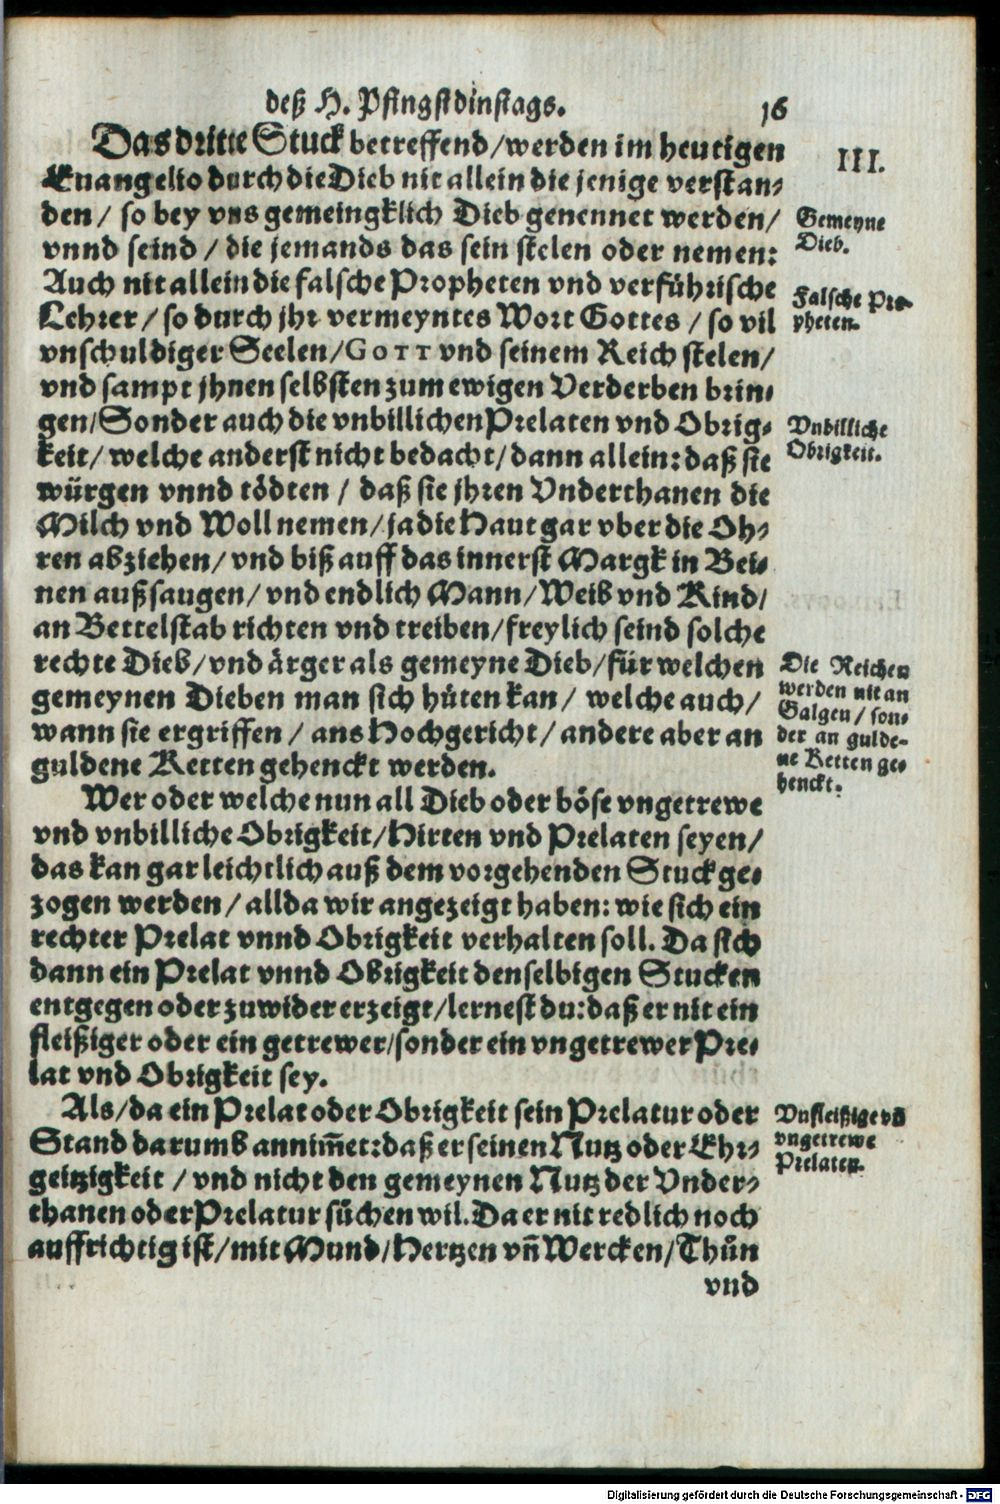 deß H. Pfingstdinstags. 16
Das dritte Stuck betreffend/werden im heutigen
III.
Euangelio durch die Dieb nit allein die jenige verstan-
den/ so bey vns gemeingklich Dieb genennet werden/
Gemeyne
Dieb.
vnnd seind / die jemands das sein stelen oder nemen:
Auch nit allein die falsche Propheten vnd verführische
Falsche Pro-
pheten.
Lehrer/ so durch jhr vermeyntes Wort Gottes / so vil
vnschuldiger Seelen/GOTT vnd seinem Reich stelen/
vnd sampt jhnen selbsten zum ewigen Verderben brin-
gen/Sonder auch die vnbillichen Prelaten vnd Obrig-
Vnbilliche
Obrigkeit.
keit/ welche anderst nicht bedacht/dann allein: daß sie
würgen vnnd tödten / daß sie jhren Vnderthanen die
Milch vnd Woll nemen/ja die Haut gar vber die Oh-
ren abziehen/ vnd biß auff das innerst Margk in Bei-
nen außsaugen/ vnd endlich Mann/Weib vnd Kind/
an Bettelstab richten vnd treiben/freylich seind solche
rechte Dieb/vnd ärger als gemeyne Dieb/für welchen
Die Reichen
werden nit an
Galgen/ son-
der an gulde-
ne Ketten ge-
henckt.
gemeynen Dieben man sich hüten kan/ welche auch/
wann sie ergriffen / ans Hochgericht/andere aber an
guldene Ketten gehenckt werden.
Wer oder welche nun all Dieb oder böse vngetrewe
vnd vnbilliche Obrigkeit/Hirten vnd Prelaten seyen/
das kan gar leichtlich auß dem vorgehenden Stuck ge-
zogen werden/ allda wir angezeigt haben: wie sich ein
rechter Prelat vnnd Obrigkeit verhalten soll. Da sich
dann ein Prelat vnnd Obrigkeit denselbigen Stucken
entgegen oder zuwider erzeigt/lernest du: daß er nit ein
fleißiger oder ein getrewer/sonder ein vngetrewer Pre-
lat vnd Obrigkeit sey.
Als/da ein Prelat oder Obrigkeit sein Prelatur oder
Vnfleißige vn̄
vngetrewe
Prelaten.
Stand darumb annim̄et: daß er seinen Nutz oder Ehr-
geitzigkeit / vnd nicht den gemeynen Nutz der Vnder-
thanen oder Prelatur sůchen wil. Da er nit redlich noch
auffrichtig ist/mit Mund/Hertzen vn̄ Wercken/Thůn
vnd
Digitalisierung gefördert durch die Deutsche Forschungsgemeinschaft - DFG